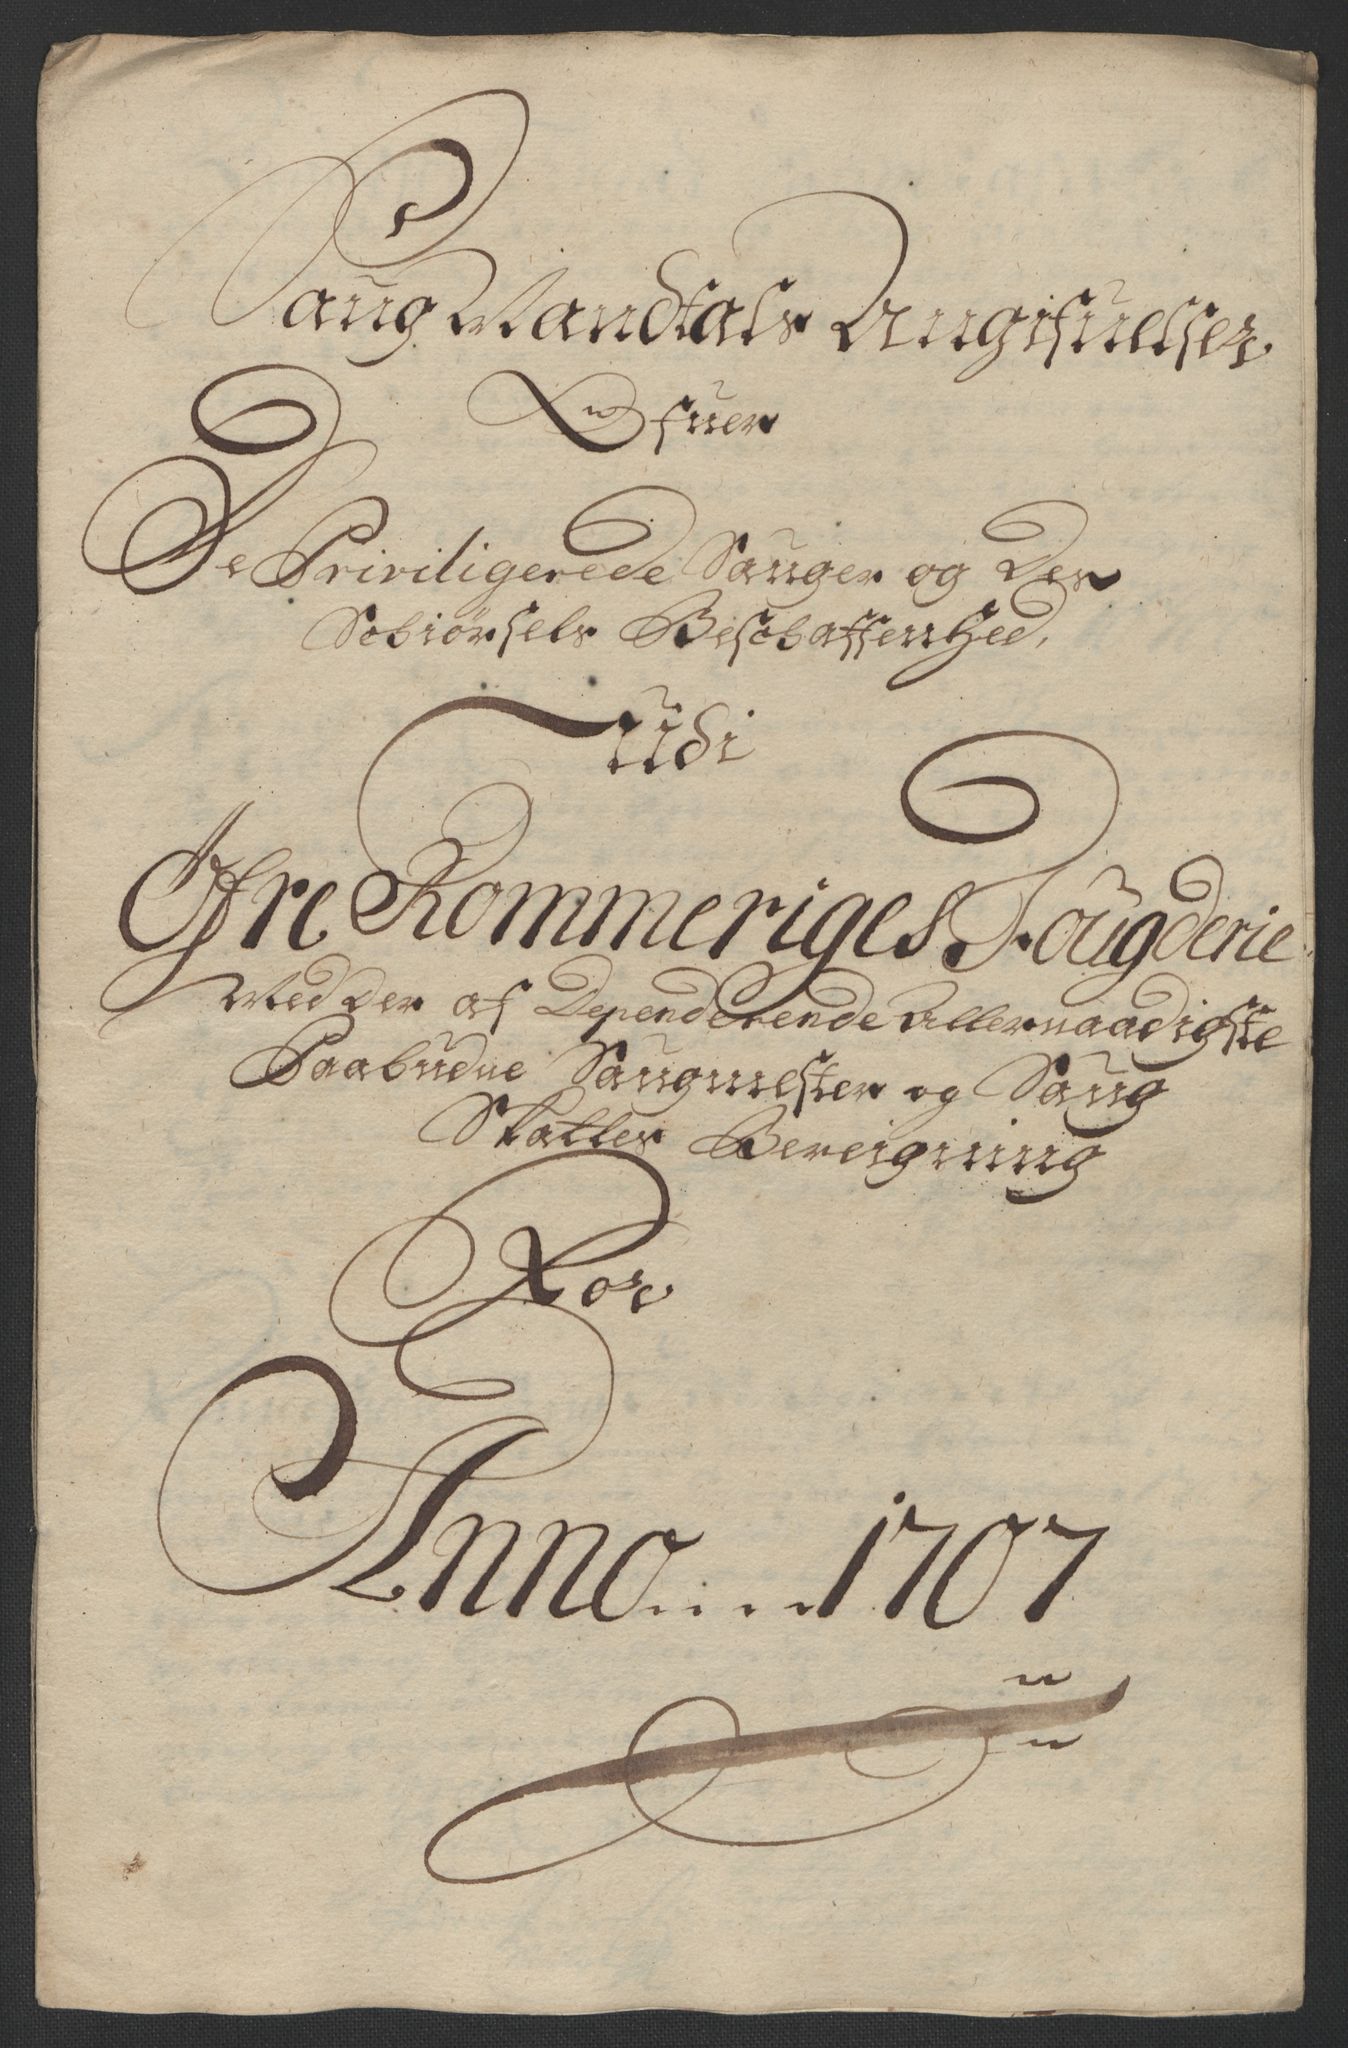 Saug Mandtals Angifuelser
Ofuer
De Priviligerede Sauger og Des
Schiørsels Beschaffenhed,
Udi
Øfre Rommeriges Fougderie
Med Der af Dependerende Allernaadigste
Paabudne Saugmester og Saug
Skatters Bereigning
For
Anno....1707